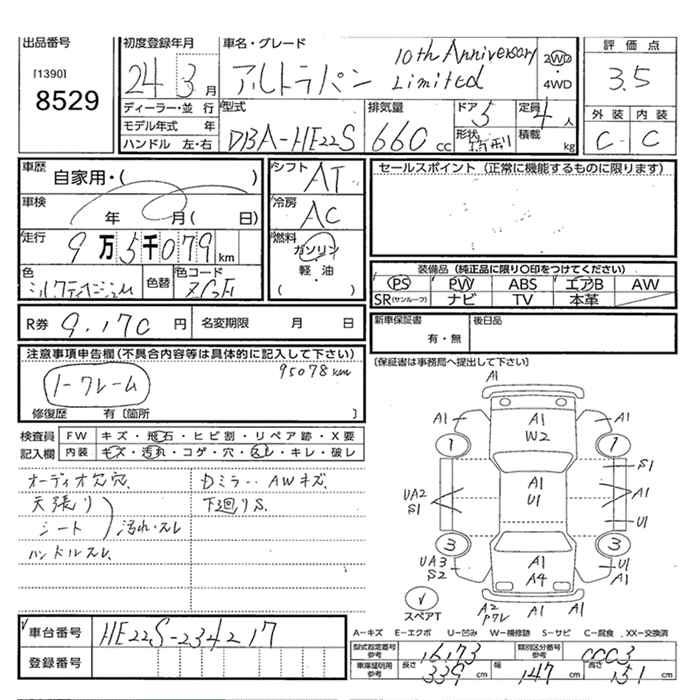 出品番号
[1390]
8529
初度登録年月
24 3 月
車名・グレード
アルトラパン 10th Anniversary Limited
2WD
・
4WD
評価点
3.5
外装 内装
C C
ディーラー・並行
モデル年式 年
ハンドル 左・右
型式
DBA-HE22S
排気量
660 cc
ドア 5
形状
定員 4 人
積載 kg
車歴
自家用・( )
車検
年 月( 日)
走行
9万5千079 km
色
色替
色コード
シフト
AT
冷房
AC
燃料
ガソリン
・
軽・油
( )
セールスポイント (正常に機能するものに限ります)
装備品 (純正品に限り○印をつけてください)
PS PW ABS エアB AW
SR(サンルーフ) ナビ TV 本革
R券 9,170 円 名変期限 月 日
新車保証書
有・無
後日品
(保証書は事務局へ提出して下さい)
注意事項申告欄(不具合内容等は具体的に記入して下さい)
95078km
ノークレーム
修復歴 有〔箇所 〕
検査員
記入欄
FW キズ・飛石・ヒビ割・リペア跡・X要
内装 キズ・汚れ・コゲ・穴・スレ・キレ・破レ
オーディオ欠穴、
Dミラー、AWキズ、
天張り
下廻りS、
シート
汚れ・スレ
ハンドルスレ、
A1
A1 A1 W2 A1
1 1
S1
A1
UA2
S1
U1
A1
U1
3 3
UA3
S2
A1
A4
U1
A1
スペアT
A2
A1
A-キズ E-エクボ U-凹み W-補修跡 S-サビ C-腐食 XX-交換済
車台番号 HE22S-234217
登録番号
型式指定番号
参考
16173
類別区分番号
参考
車庫証明用
参考
長さ 339 cm 幅 147 cm 高さ 151 cm